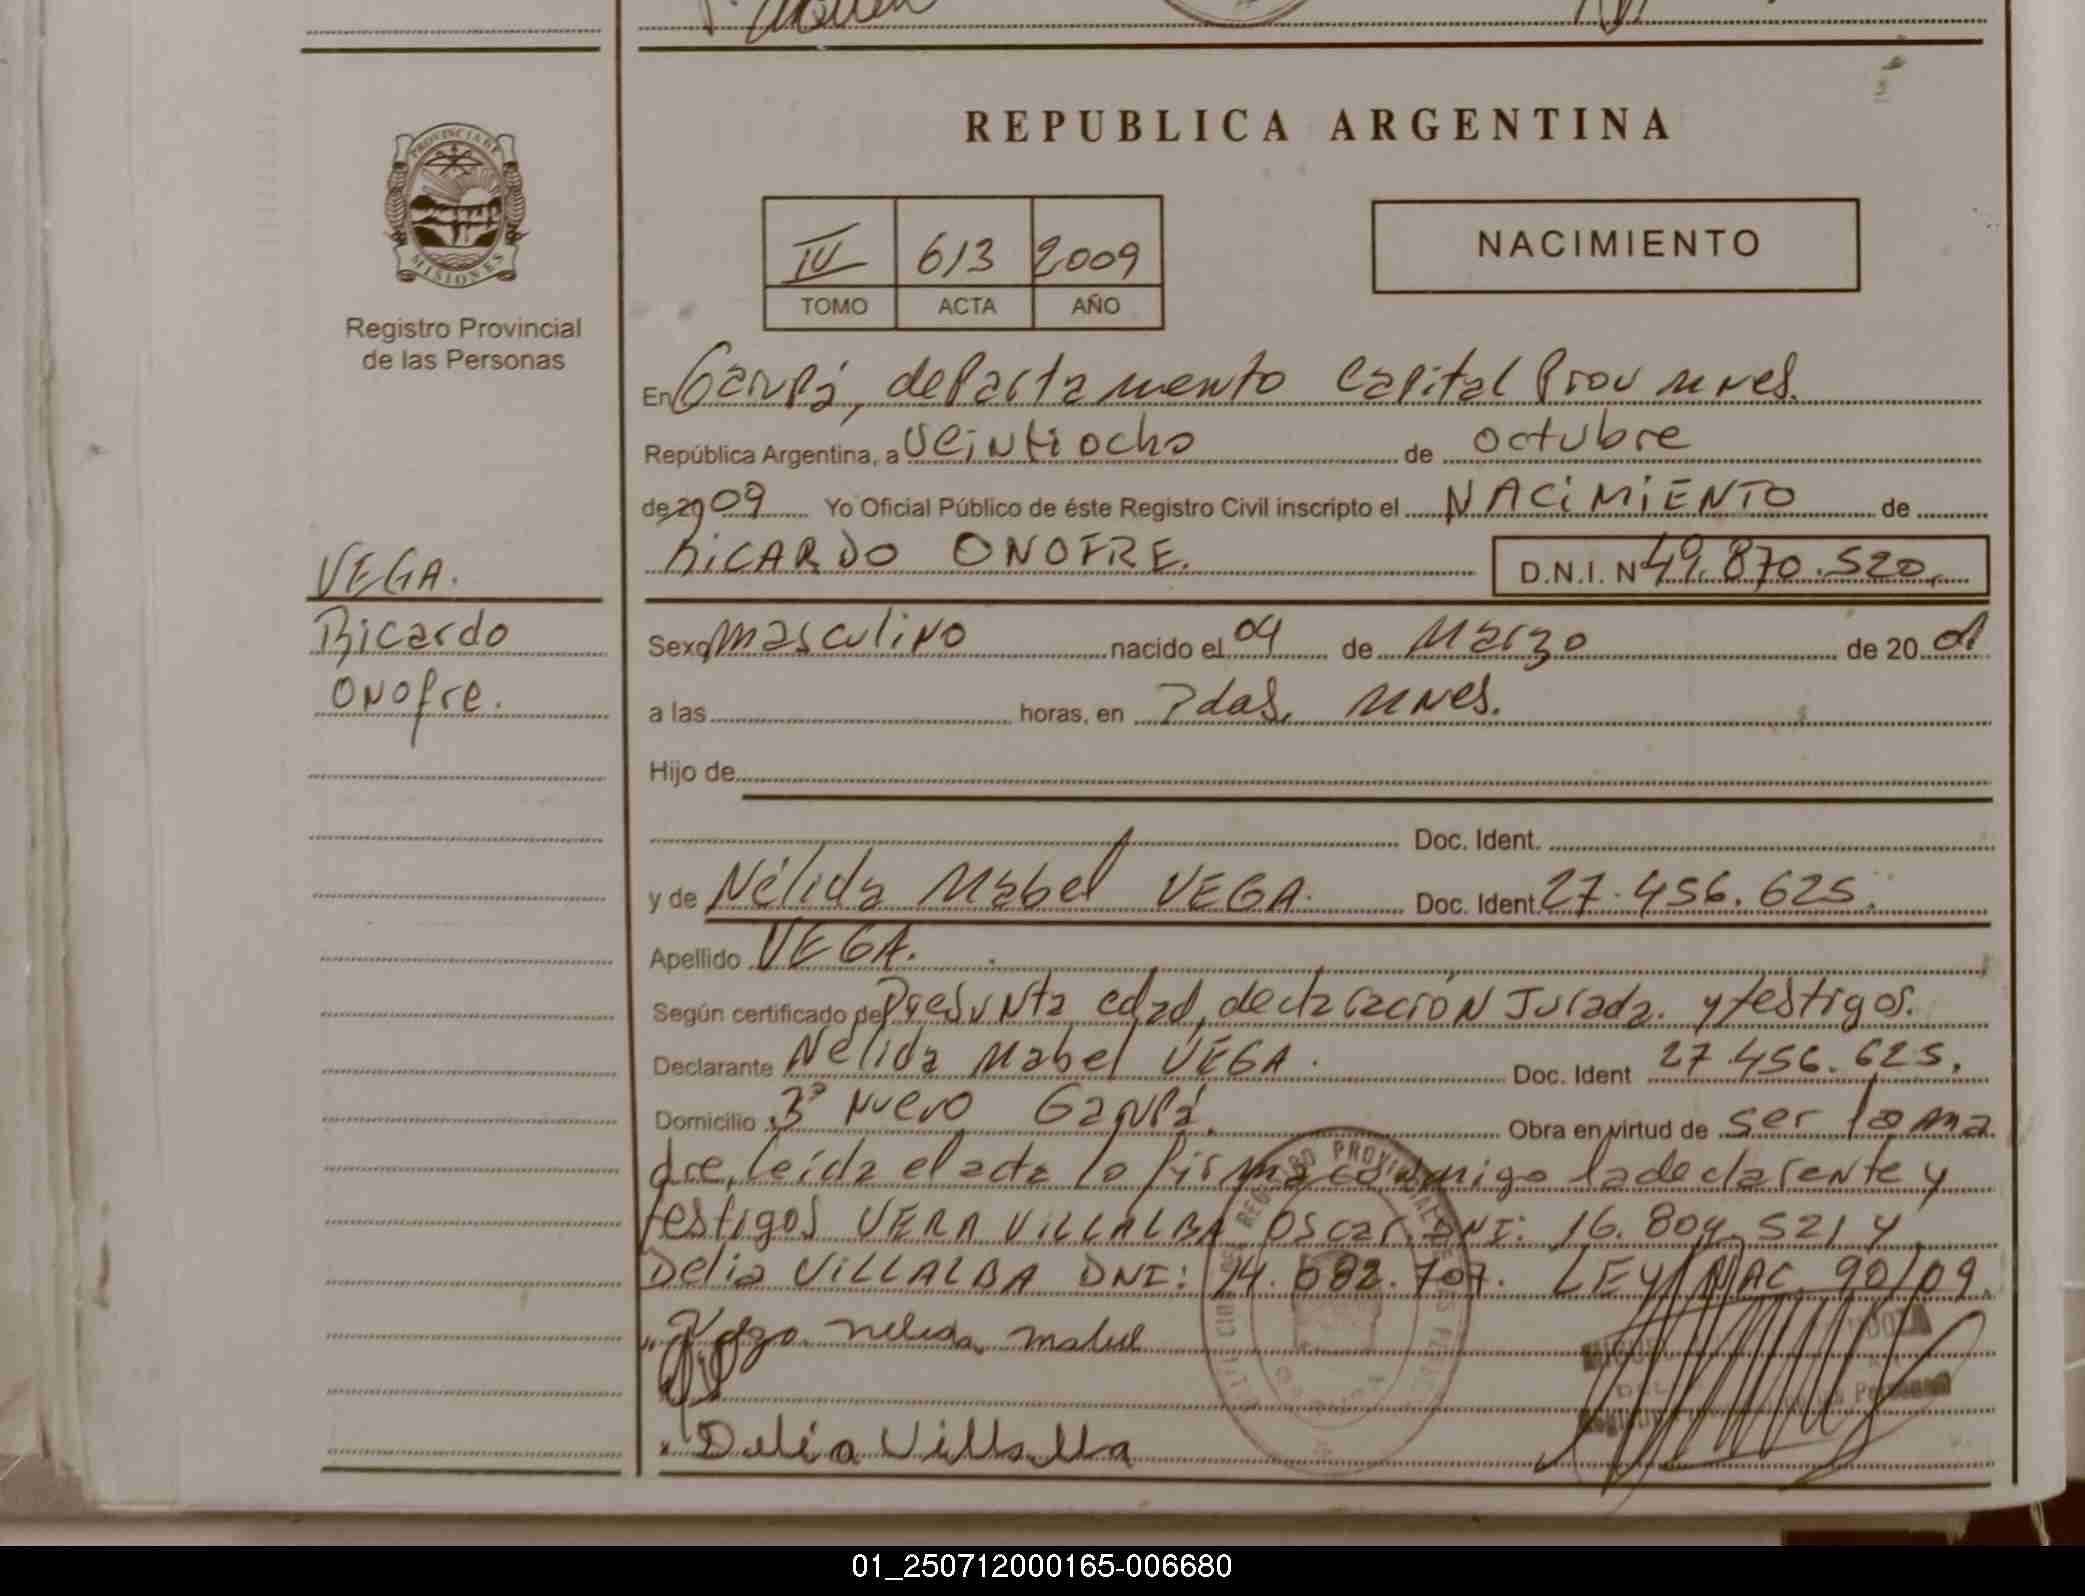 REPUBLICA ARGENTINA
PROVINCIA DE MISIONES
Registro Provincial
de las Personas
IV 613 2009
TOMO ACTA AÑO
NACIMIENTO
En Garupá, departamento Capital Prov mnes.
República Argentina, a veintiocho de octubre
de 2009 Yo Oficial Público de éste Registro Civil inscripto el NACIMIENTO de
RICARDO ONOFRE. D.N.I. N 49.870.520.
VEGA.
Ricardo
Onofre.
Sexo masculino nacido el 04 de Marzo de 20 01
a las horas, en Pdas. mnes.
Hijo de
Doc. Ident.
y de Nélida Mabel VEGA. Doc. Ident. 27.456.625.
Apellido VEGA.
Según certificado de Presunta edad, declaración Jurada. y testigos.
Declarante Nélida Mabel VEGA. Doc. Ident 27.456.625.
Domicilio Bº Nuevo Garupá. Obra en virtud de ser la ma
dre, leída el acta la firma conmigo la declarente y
testigos VERA VILLALBA Oscar DNI: 16.804.521 y
Delia VILLALBA DNI: 14.682.707. LEY NAC. 90/09.
Vega nelida mabel
Delia Villalba
01_250712000165-006680